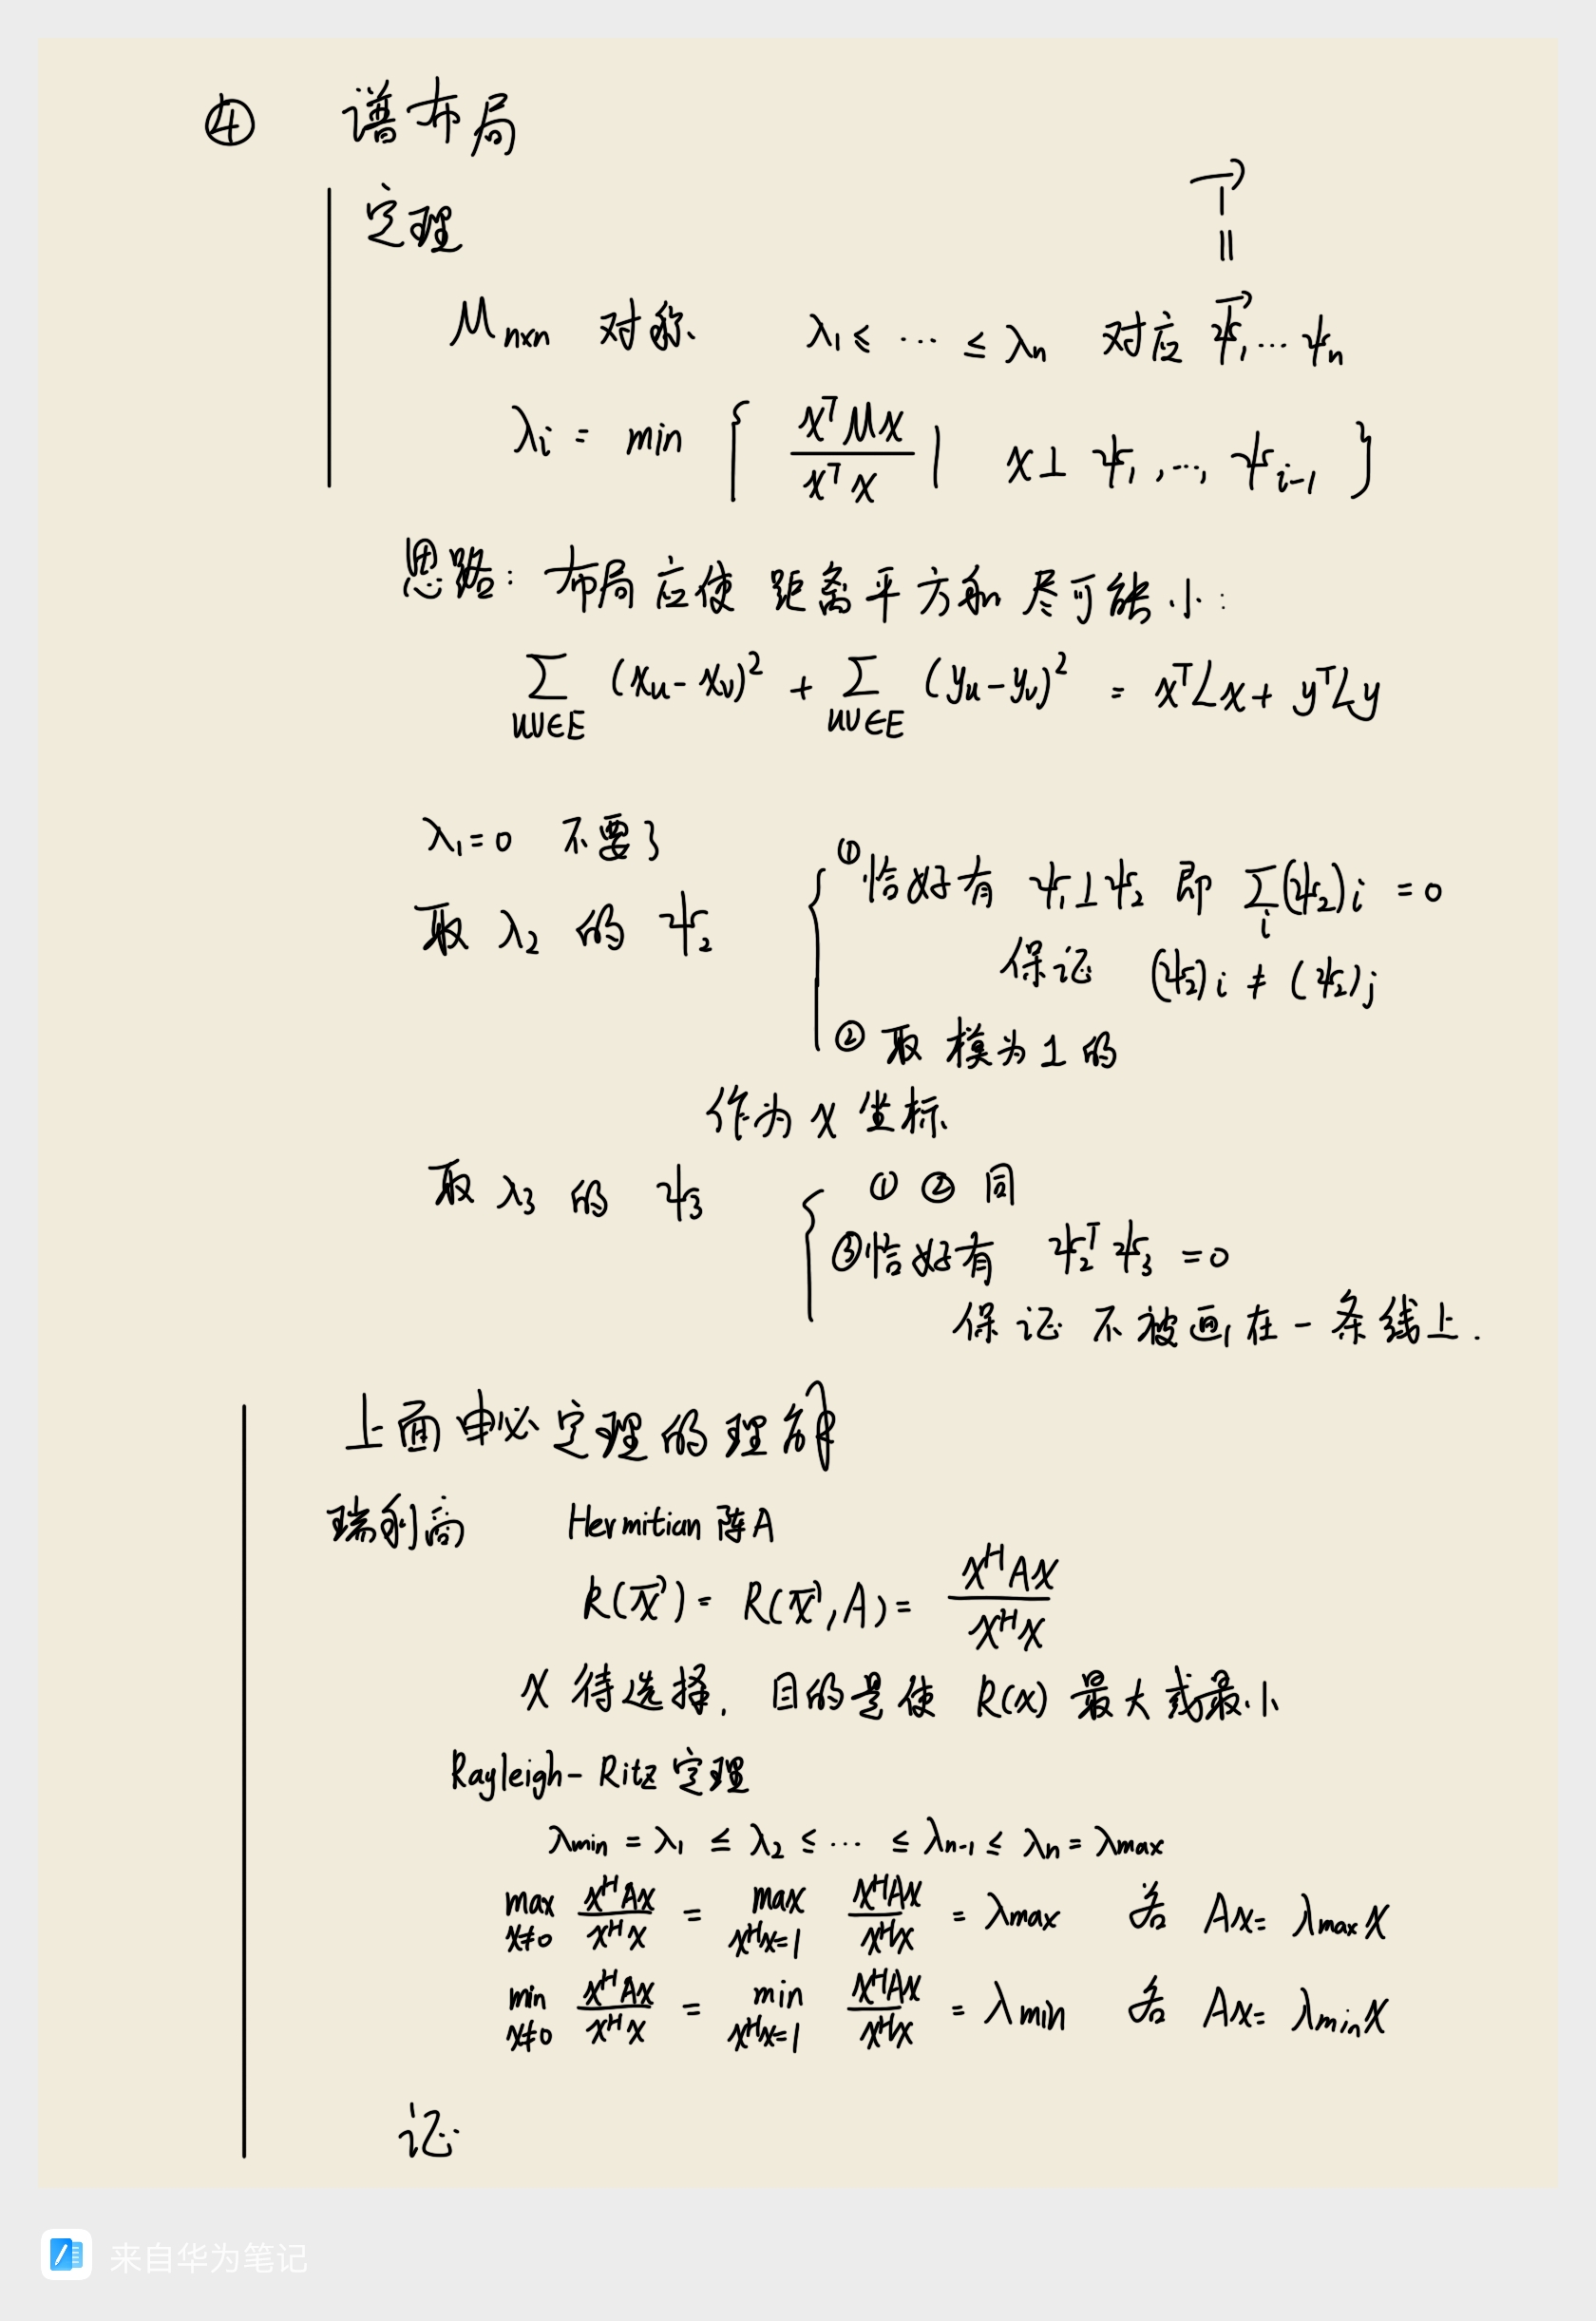 ④ 谱布局
定理
1⃗
||
M_{n×n} 对称 λ₁ ≤ … ≤ λₙ 对应 ψ⃗₁, … ψₙ
λᵢ = min { xᵀMx / xᵀx | x ⊥ ψ₁, …, ψ_{i-1} }
思路: 布局应使 距离平方和 尽可能小:
∑_{uv∈E} (x_u - x_v)² + ∑_{uv∈E} (y_u - y_v)² = xᵀLx + yᵀLy
λ₁ = 0 不要了
取 λ₂ 的 ψ₂ { ① 恰好有 ψ₁ ⊥ ψ₂ 即 ∑_i (ψ₂)i = 0
保证 (ψ₂)i ≠ (ψ₂)j
② 取 模为 1 的
作为 x 坐标
取 λ₃ 的 ψ₃ { ① ② 同
③ 恰好有 ψ₂ᵀ ψ₃ = 0
保证 不被画在一条线上.
上面中心定理的理解
瑞利商 Hermitian 阵A
R(x⃗) = R(x⃗, A) = xᴴAx / xᴴx
x 待选择, 目的是使 R(x) 最大或最小
Rayleigh-Ritz 定理
λmin = λ₁ ≤ λ₂ ≤ … ≤ λ_{n-1} ≤ λₙ = λmax
max_{x≠0} xᴴAx / xᴴx = max_{xᴴx=1} xᴴAx / xᴴx = λmax 若 Ax = λmax x
min_{x≠0} xᴴAx / xᴴx = min_{xᴴx=1} xᴴAx / xᴴx = λmin 若 Ax = λmin x
证.
来自华为笔记